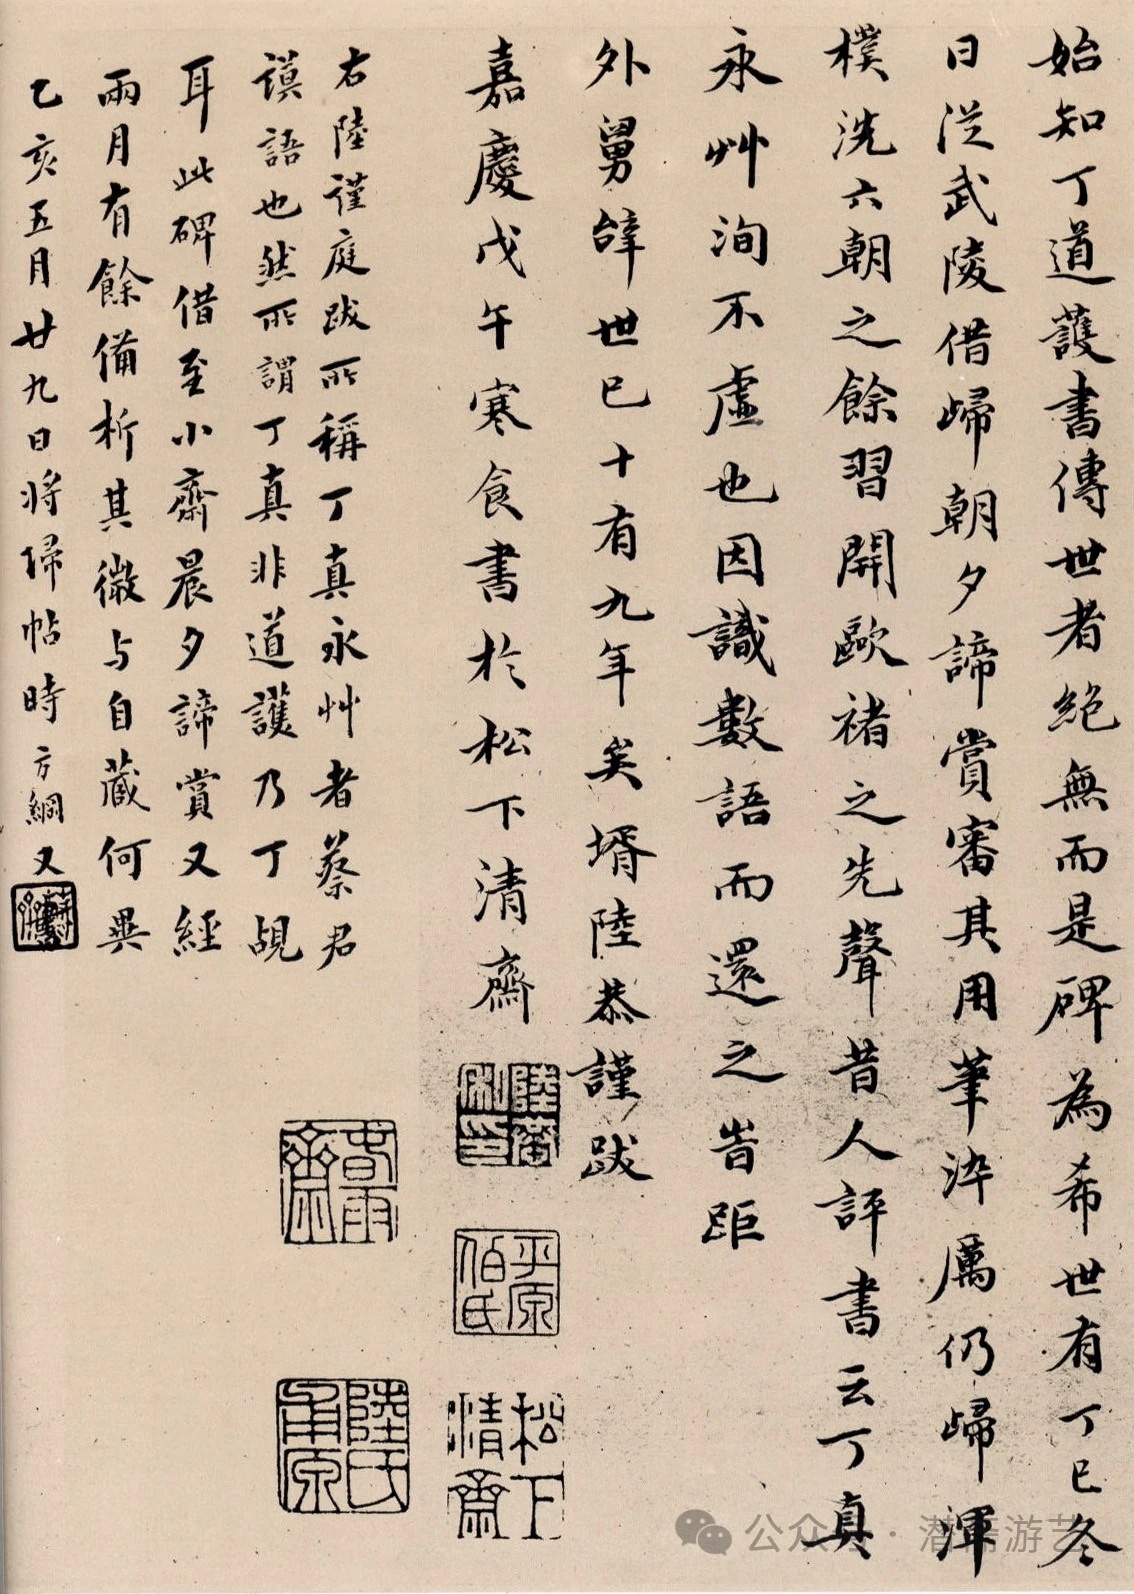 始知丁道護書傳世者絶無而是碑為希世有丁巳冬
日從武陵借歸朝夕諦賞審其用筆淬厲仍歸渾
樸洗六朝之餘習開歐褚之先聲昔人評書云丁真
永艸洵不虛也因識數語而還之旹距
外舅辭世已十有九年矣壻陸恭謹跋
嘉慶戊午寒食書於松下清齋
平原
伯氏
松下
清齋
右陸謹庭跋所稱丁真永艸者蔡君
謨語也然所謂丁真非道護乃丁覘
耳此碑借至小齋晨夕諦賞又經
兩月有餘備析其微与自藏何異
乙亥五月廿九日將歸帖時方綱又
春雨
齋
陸氏
甫原
公众号·潜斋游艺